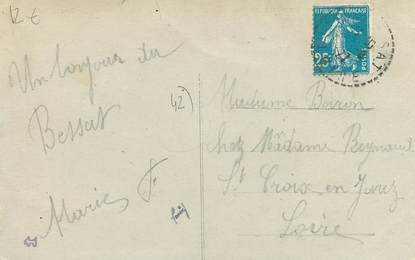 12 €
Un bonjour du
Bessat
Marie F.
(42)
REPUBLIQUE FRANÇAISE
25
POSTES
Madame
chez Madame
St Croix en Jarez
Loire